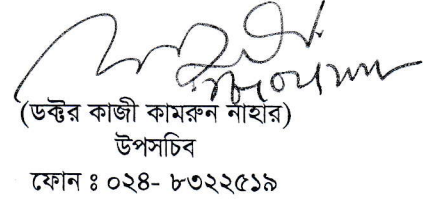 (ডক্টর কাজী কামরুন নাহার)
উপসচিব
ফোন ঃ ০২৪- ৮৩২২৫১৯